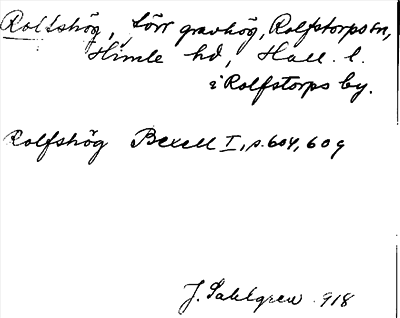 Rolfshög, törr gravhög, Rolfstorps sn,
Himle hd, Hall. l.
i Rolfstorps by.
Rolfshög Bexell I, s. 604, 609
J. Sahlgren 918